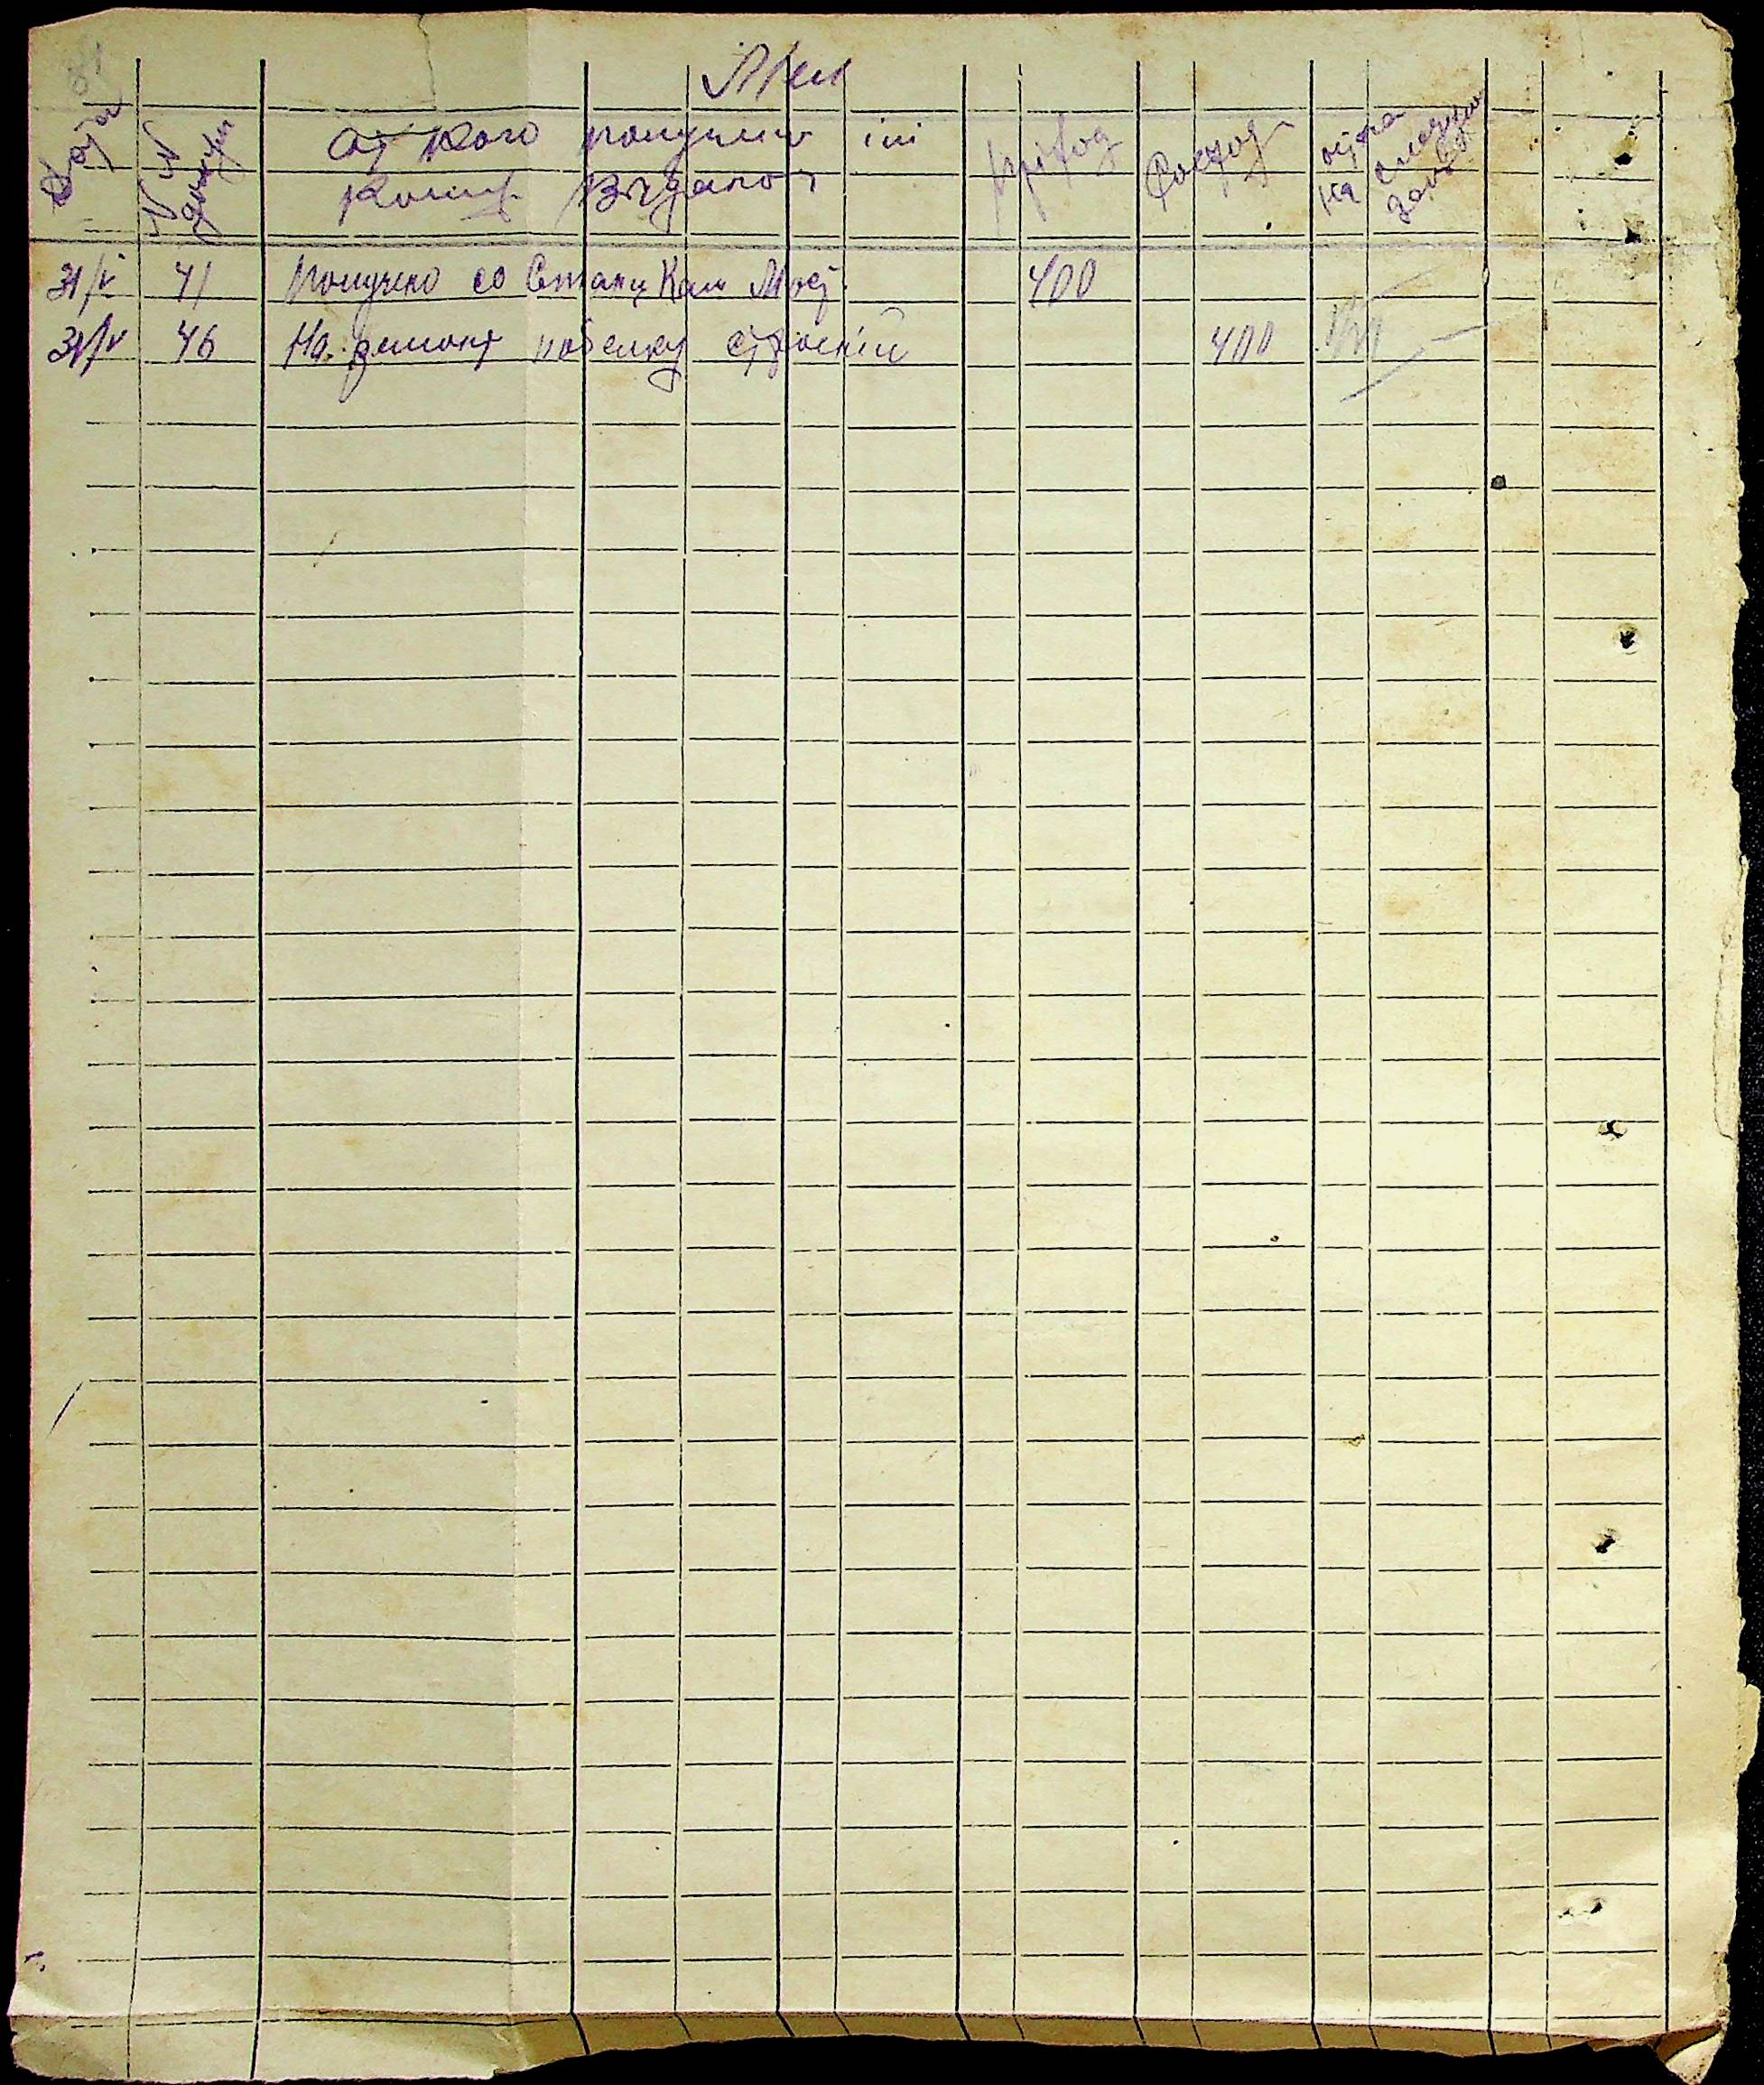 Мел
Дата
NN докум
от кого получено или
кому выдано
приход
Расход
остаток на следующ
31/V 41 Получено со Станц Кам Мост 400
31/V 46 На ремонт побелку строений 400